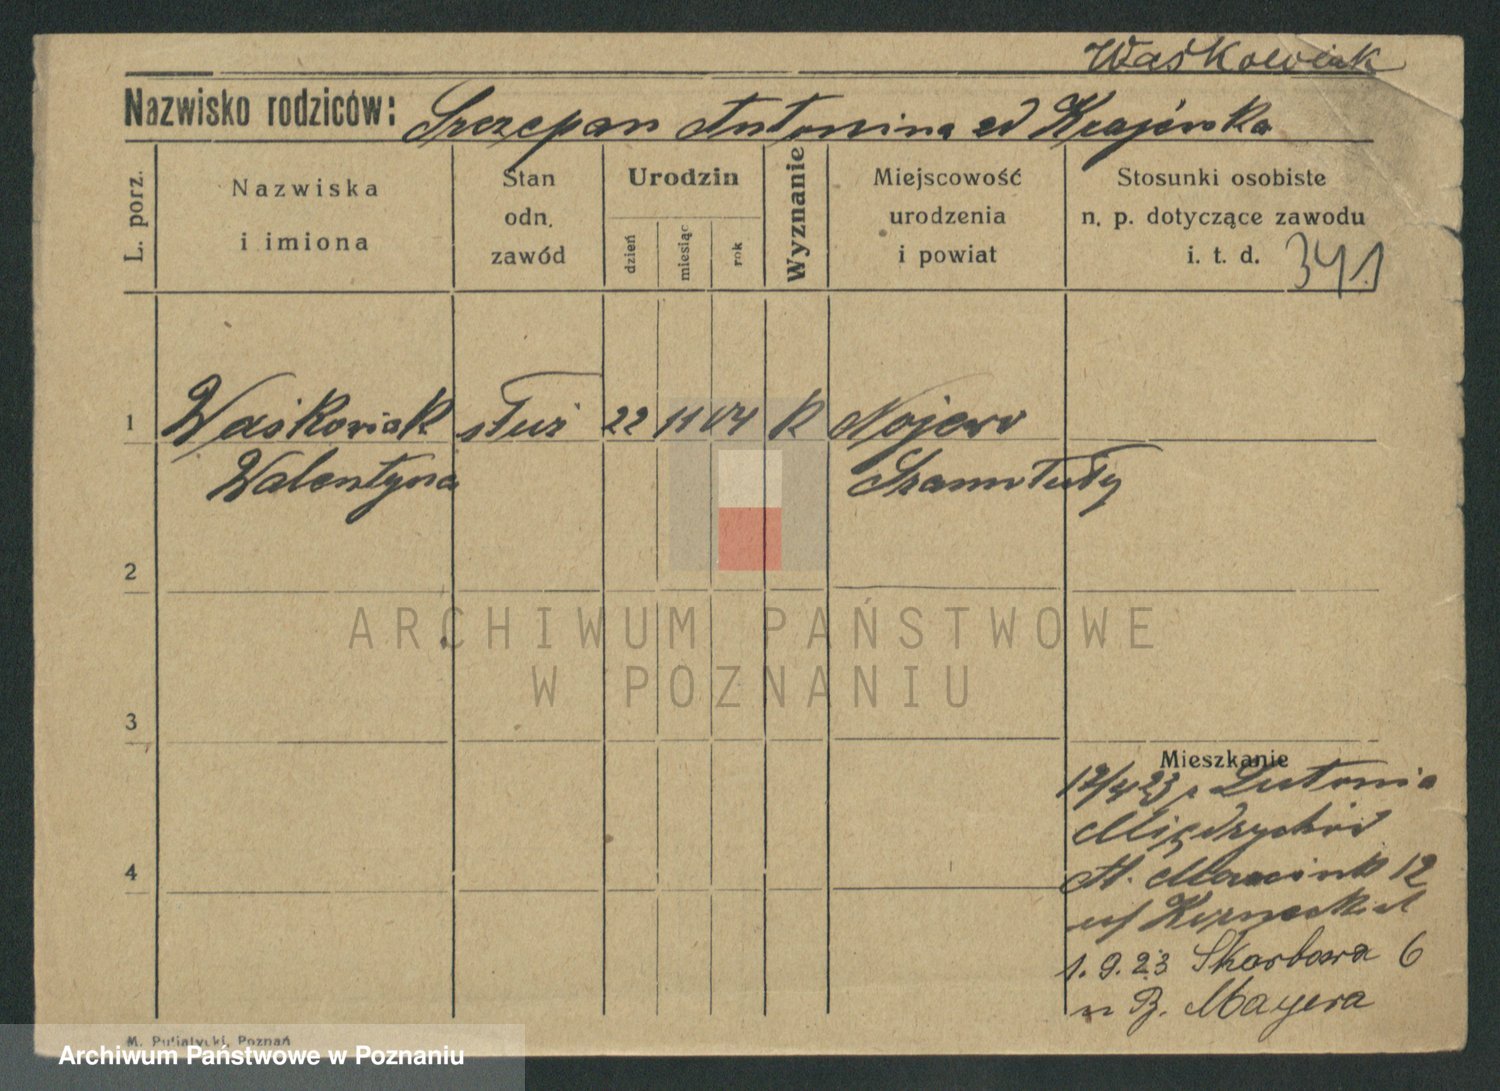 Waśkowiak
Nazwisko rodziców: Szczepan Antonina zd Krajewska
L. porz.
Nazwiska
i imiona
Stan
odn.
zawód
Urodzin
dzień
miesiąc
rok
Wyznanie
Miejscowość
urodzenia
i powiat
Stosunki osobiste
n. p. dotyczące zawodu
i. t. d.
341
1 Waśkowiak służ 22 11 04 K Nojewo
Walentyna Szamotuły
2
3
4
Mieszkanie
12/4 23 z Lutonia
Międzychód
M. Marcink 12
1.9.23 Skarbowa 6
u B. Mayera
M. Putiatycki, Poznań
ARCHIWUM PAŃSTWOWE
W POZNANIU
Archiwum Państwowe w Poznaniu